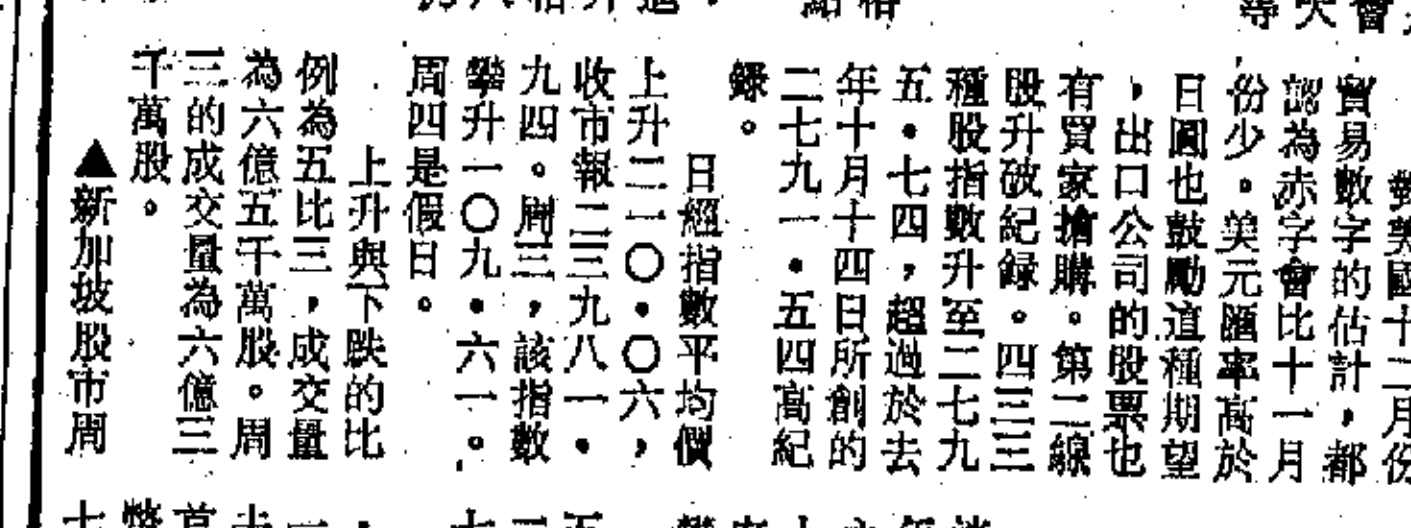 對美國十二月份
貿易數字的估計，都
認為赤字會比十一月
份少。美元匯率高於
日圓也鼓勵這種期望
，出口公司的股票也
有買家搶購。第二線
股升破紀録。四三三
種股指數升至二七九
五·七四，超過於去
年十月十四日所創的
二七九一·五四高紀
録。
日經指數平均價
上升二一〇·〇六，
收市報二三九八一·
九四。周三，該指數
攀升一〇九·六一。
周四是假日。
上升與下跌的比
例為五比三，成交量
為六億五千萬股。周
三的成交量為六億三
千萬股。
▲新加坡股市周